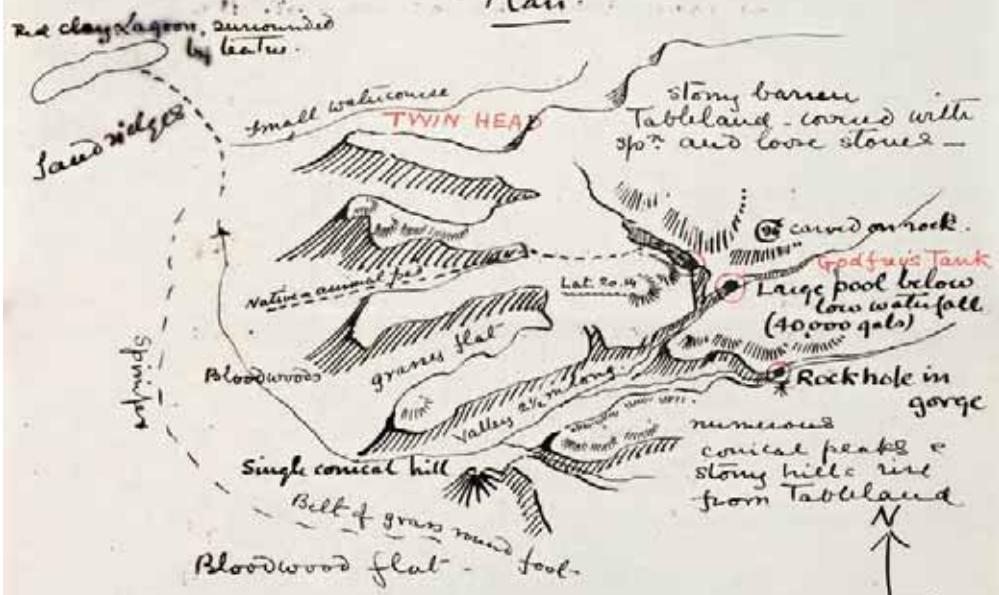 Plan.
Red clay Lagoon, surrounded
by teatree.
Sand ridges
Small watercourse
TWIN HEAD
stony barren
Tableland - covered with
spx and loose stones -
96 carved on rock.
Godfrey's Tank
Large pool below
low waterfall
(40,000 gals)
Lat. 20.14
Native & animal pad
Bloodwoods
grassy flat
Valley 2½ m long.
Rockhole in
gorge
spinifex
Single conical hill
numerous
conical peaks &
stony hills rise
from Tableland
Belt of grass round foot.
Bloodwood flat.
N